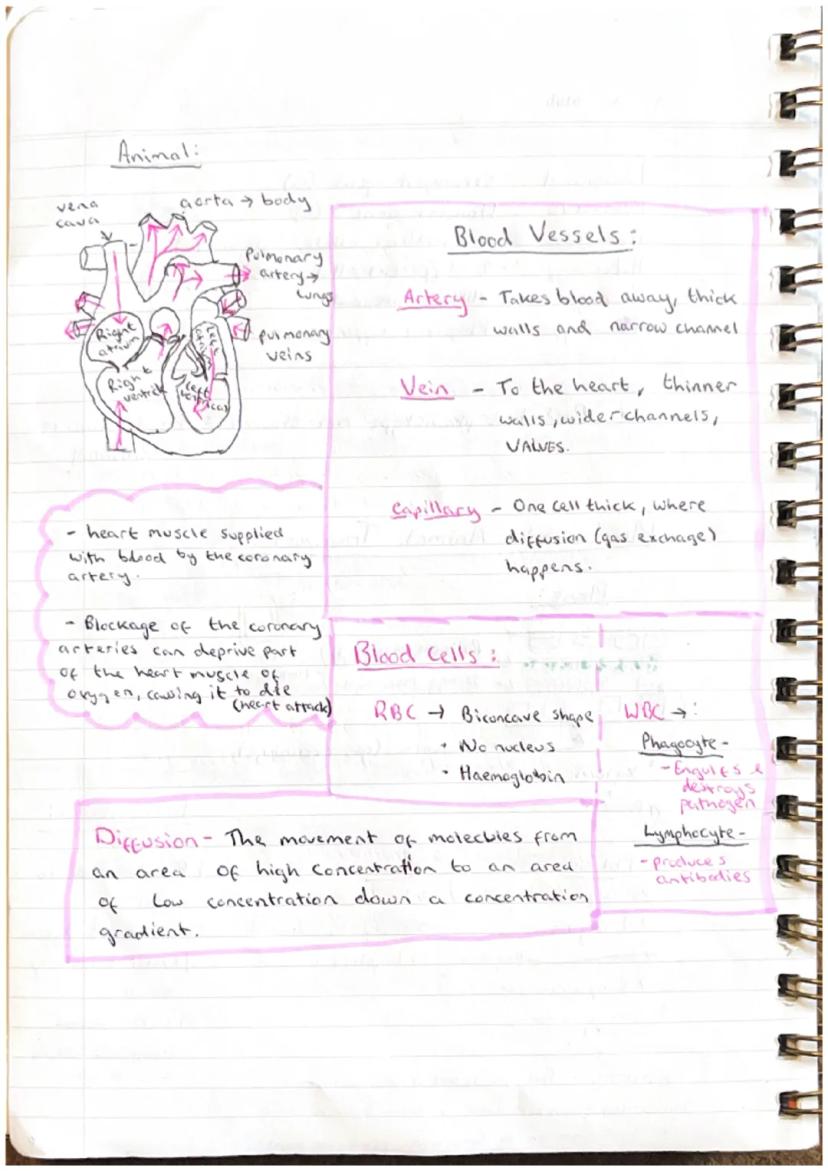 Animal:
vena
cava
aorta → body
Pulmonary
artery →
lungs
pulmonary
veins
Right
atrium
Left
atrium
Right
ventricle
Left
Blood Vessels:
Artery - Takes blood away, thick
walls and narrow channel
Vein - To the heart, thinner
walls, wider channels,
VALVES.
Capillary - One cell thick, where
diffusion (gas exchage)
happens.
- heart muscle supplied
with blood by the coronary
artery.
- Blockage of the coronary
arteries can deprive part
of the heart muscle of
oxygen, causing it to die
(heart attack)
Blood Cells:
RBC → Biconcave shape
• No nucleus
• Haemoglobin
WBC →:
Phagocyte -
- Engulfs &
destroys
pathogen
Lymphocyte -
- produces
antibodies
Diffusion - The movement of molecules from
an area of high concentration to an area
of low concentration down a concentration
gradient.